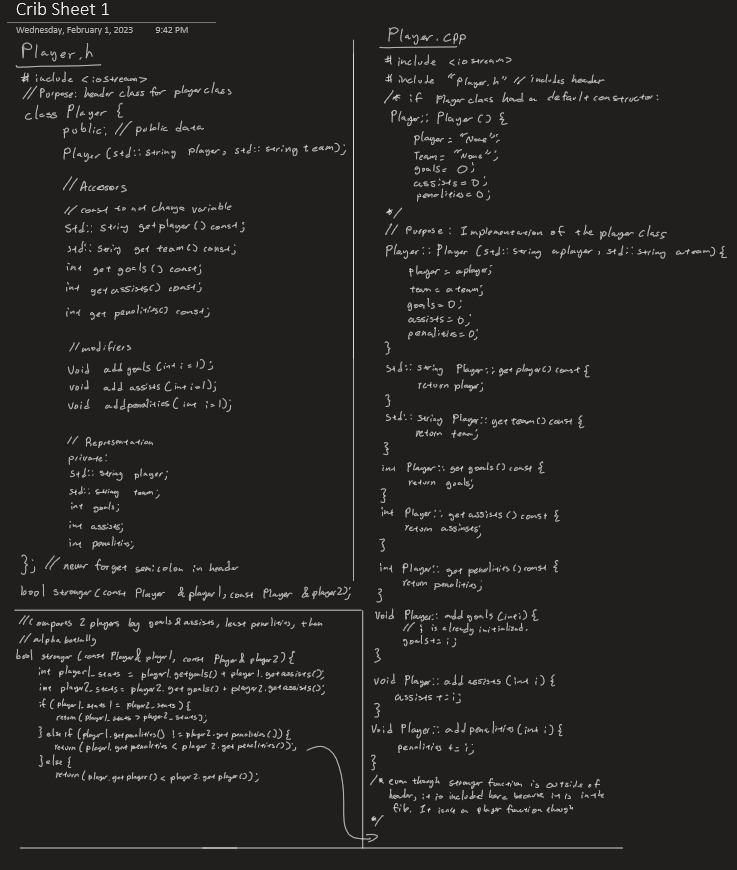 Crib Sheet 1
Wednesday, February 1, 2023 9:42 PM
Player.h
# include <iostream>
// Purpose: header class for player class
class Player {
public: // public data
Player (std:: string player, std:: string team);
// Accessors
// const to not change variable
std:: string getplayer () const;
std:: string get team () const;
int get goals () const;
int get assists () const;
int get penalities() const;
// modifiers
Void add goals (int i = 1);
void add assists (int i=1);
void addpenalities( int i=1);
// Representation
private:
std:: string player;
std:: string team;
int goals;
int assists;
int penalities;
}; // never forget semicolon in header
bool stronger (const Player &player1, const Player &player2);
// Compares 2 players by goals & assists, least penalities, then
// alphabetically
bool stronger (const Player& player1, const Player& player2) {
int player1_stats = player1.getgoals() + player1.getassists();
int player2_stats = player2.get goals() + player2.get assists();
if (player1_stats != player2_stats) {
return (player1_stats > player2_stats);
} else if (player1.getpenalities() != player2.get penalities()) {
return (player1.get penalities < player2.get penalities());
} else {
return (player.get player() < player2.get player());
Player.cpp
# include <iostream>
# include "Player.h" // includes header
/* if Player class had a default constructor:
Player:: Player () {
player = "None";
Team = "None";
goals = 0;
assists = 0;
penalities = 0;
*/
// Purpose: Implementation of the player class
Player:: Player (std:: string aplayer, std:: string ateam) {
player = aplayer;
team = a team;
goals = 0;
assists = 0;
penalities = 0;
}
std:: string Player:: get player() const {
return player;
}
std:: string Player:: get team () const {
return team;
}
int Player:: get goals () const {
return goals;
}
int Player:: get assists () const {
return assists;
}
int Player:: get penalities () const {
return penalities;
}
Void Player:: add goals (int i) {
// i is already initialized.
goals += i;
}
void Player:: add assists (int i) {
assists += i;
}
Void Player:: add penalities (int i) {
penalities += i;
}
/* even though stronger function is outside of
header, it is included here because it is in the
file. It isnt a player function though
*/